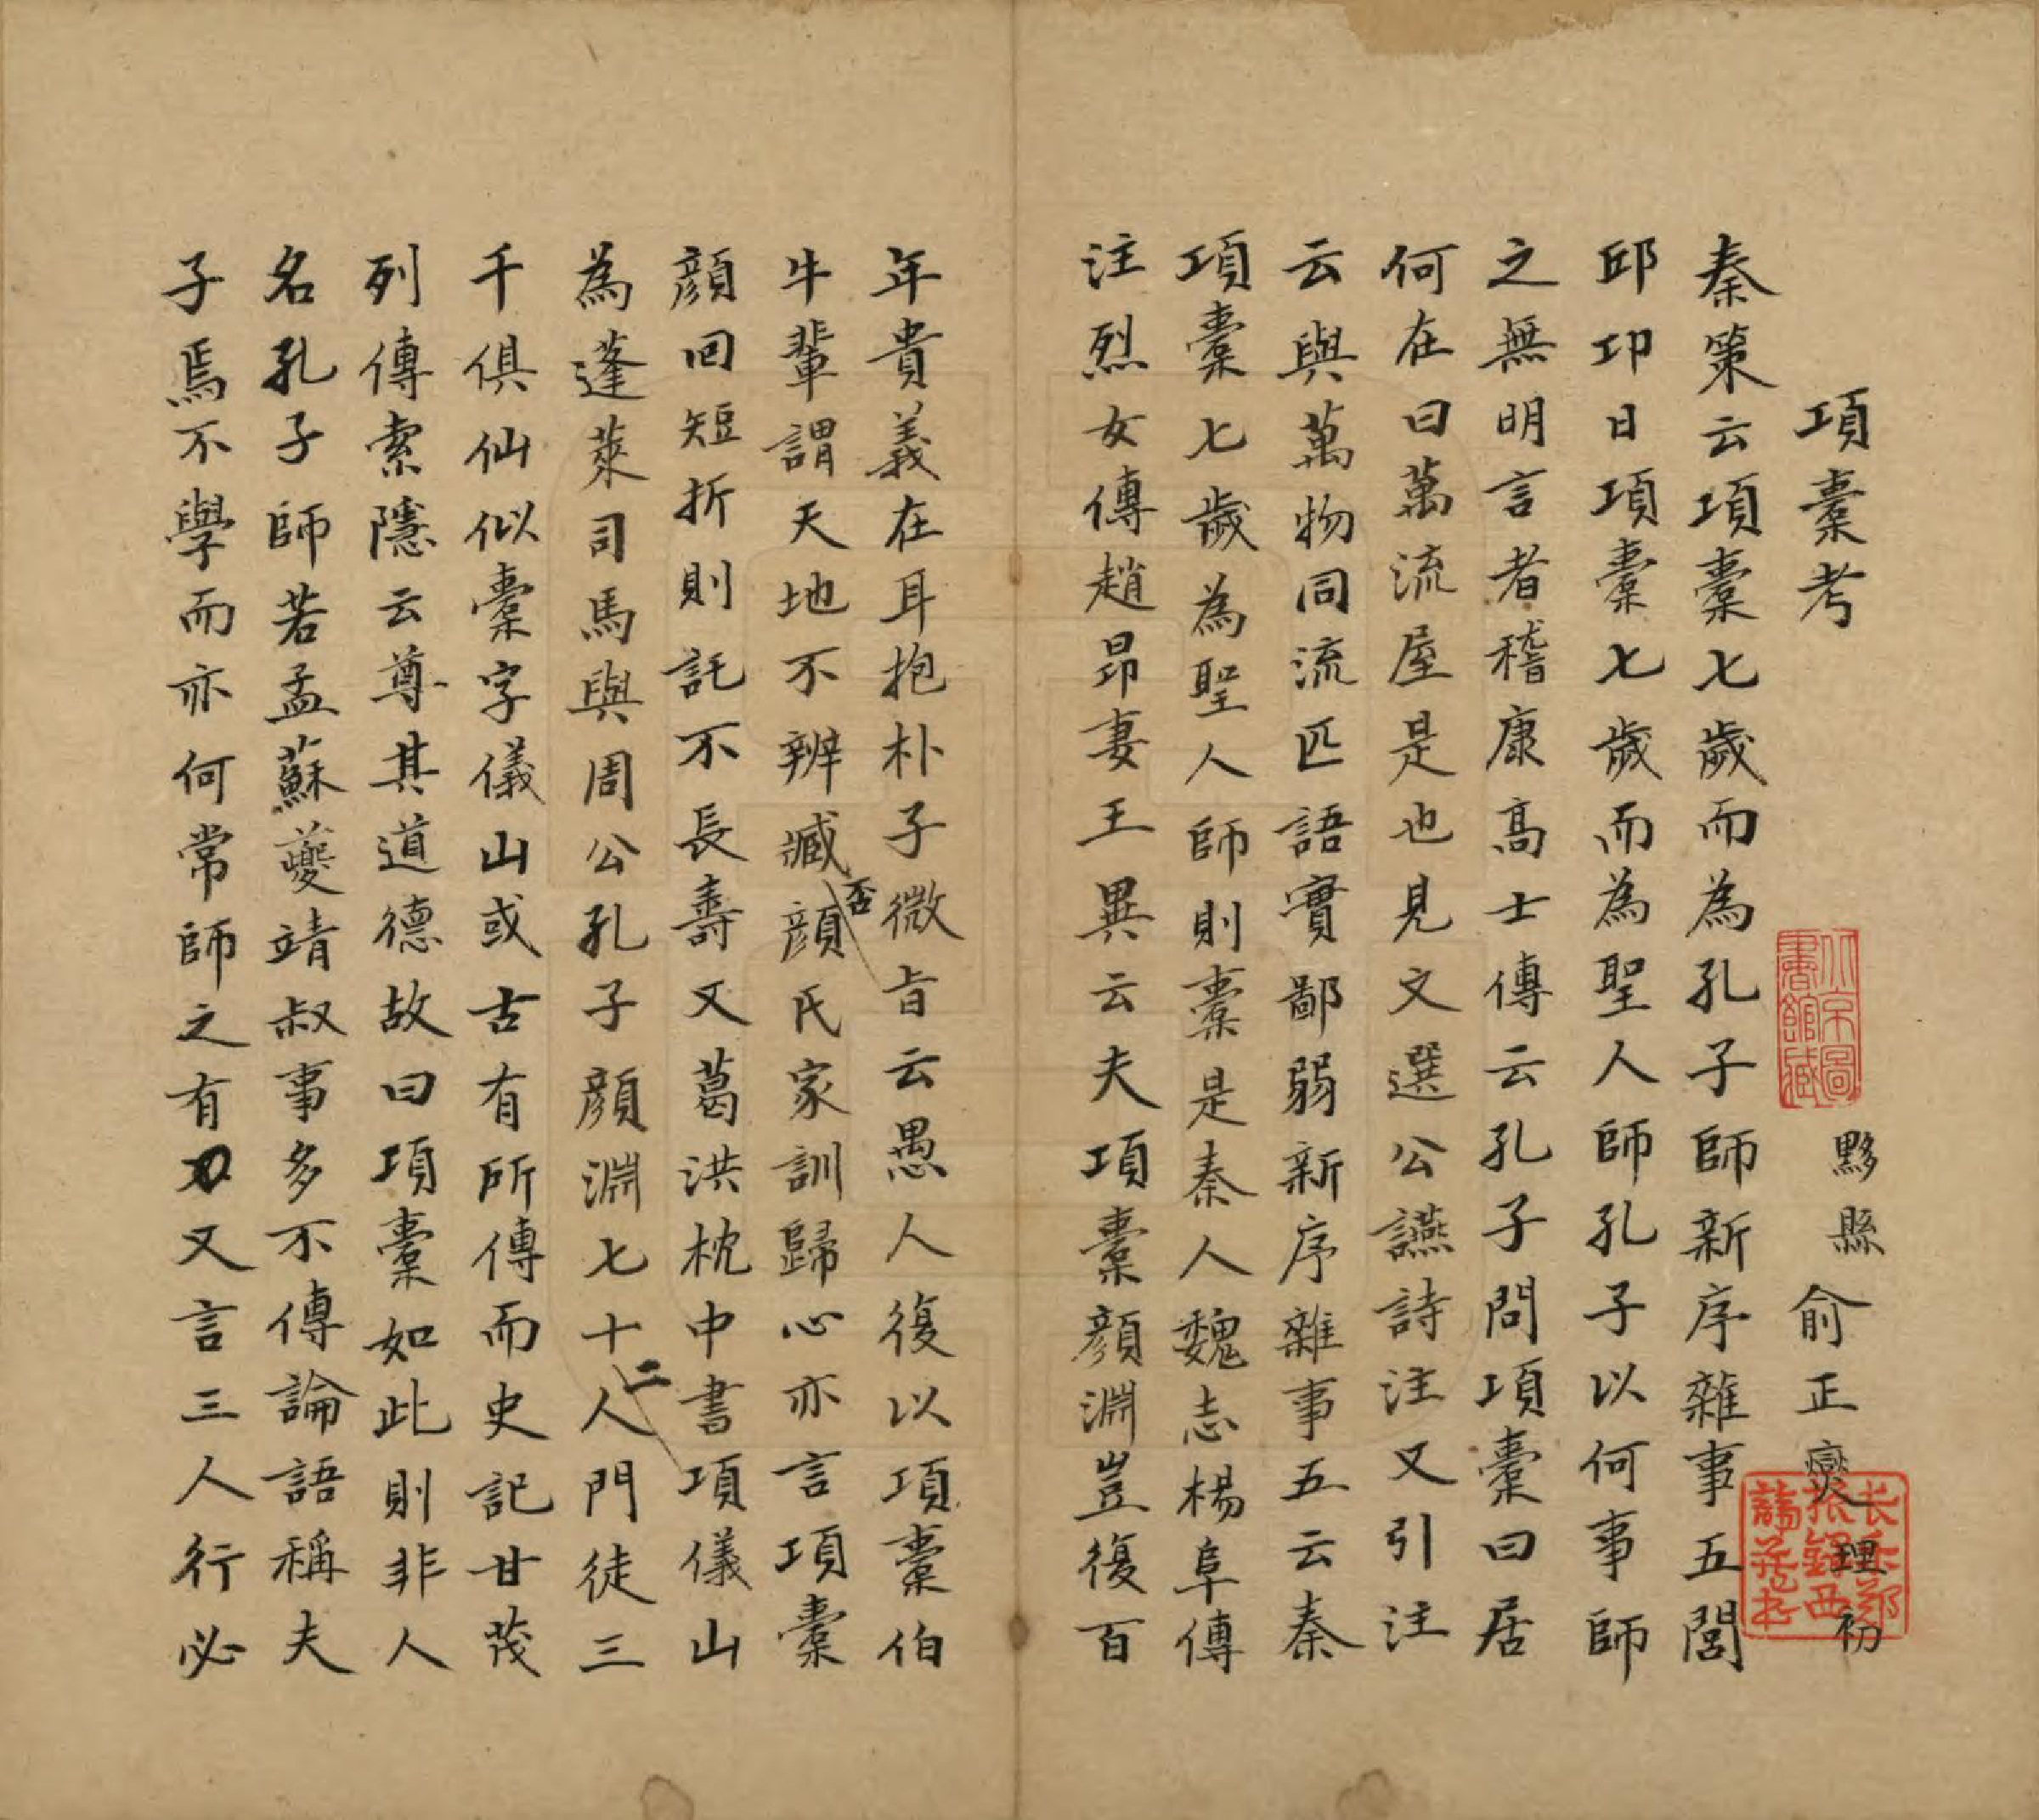 項橐考
黟縣 俞正燮 理初
秦策云項橐七歲而為孔子師新序雜事五閭
邱卭曰項橐七歲而為聖人師孔子以何事師
之無明言者稽康高士傳云孔子問項橐曰居
何在曰萬流屋是也見文選公讌詩注又引注
云與萬物同流匹語實鄙弱新序雜事五云秦
項橐七歲為聖人師則橐是秦人魏志楊阜傳
注烈女傳趙昂妻王異云夫項橐顏淵豈復百
年貴義在耳抱朴子微旨云愚人復以項橐伯
牛輩謂天地不辨臧否顏氏家訓歸心亦言項橐
顏回短折則託不長壽又葛洪枕中書項儀山
為蓬萊司馬與周公孔子顏淵七十二人門徒三
千俱仙似橐字儀山或古有所傳而史記甘茂
列傳索隱云尊其道德故曰項橐如此則非人
名孔子師若孟蘇夔靖叔事多不傳論語稱夫
子焉不學而亦何常師之有又言三人行必
北京圖書館藏
长乐郑振鐸西諦藏书